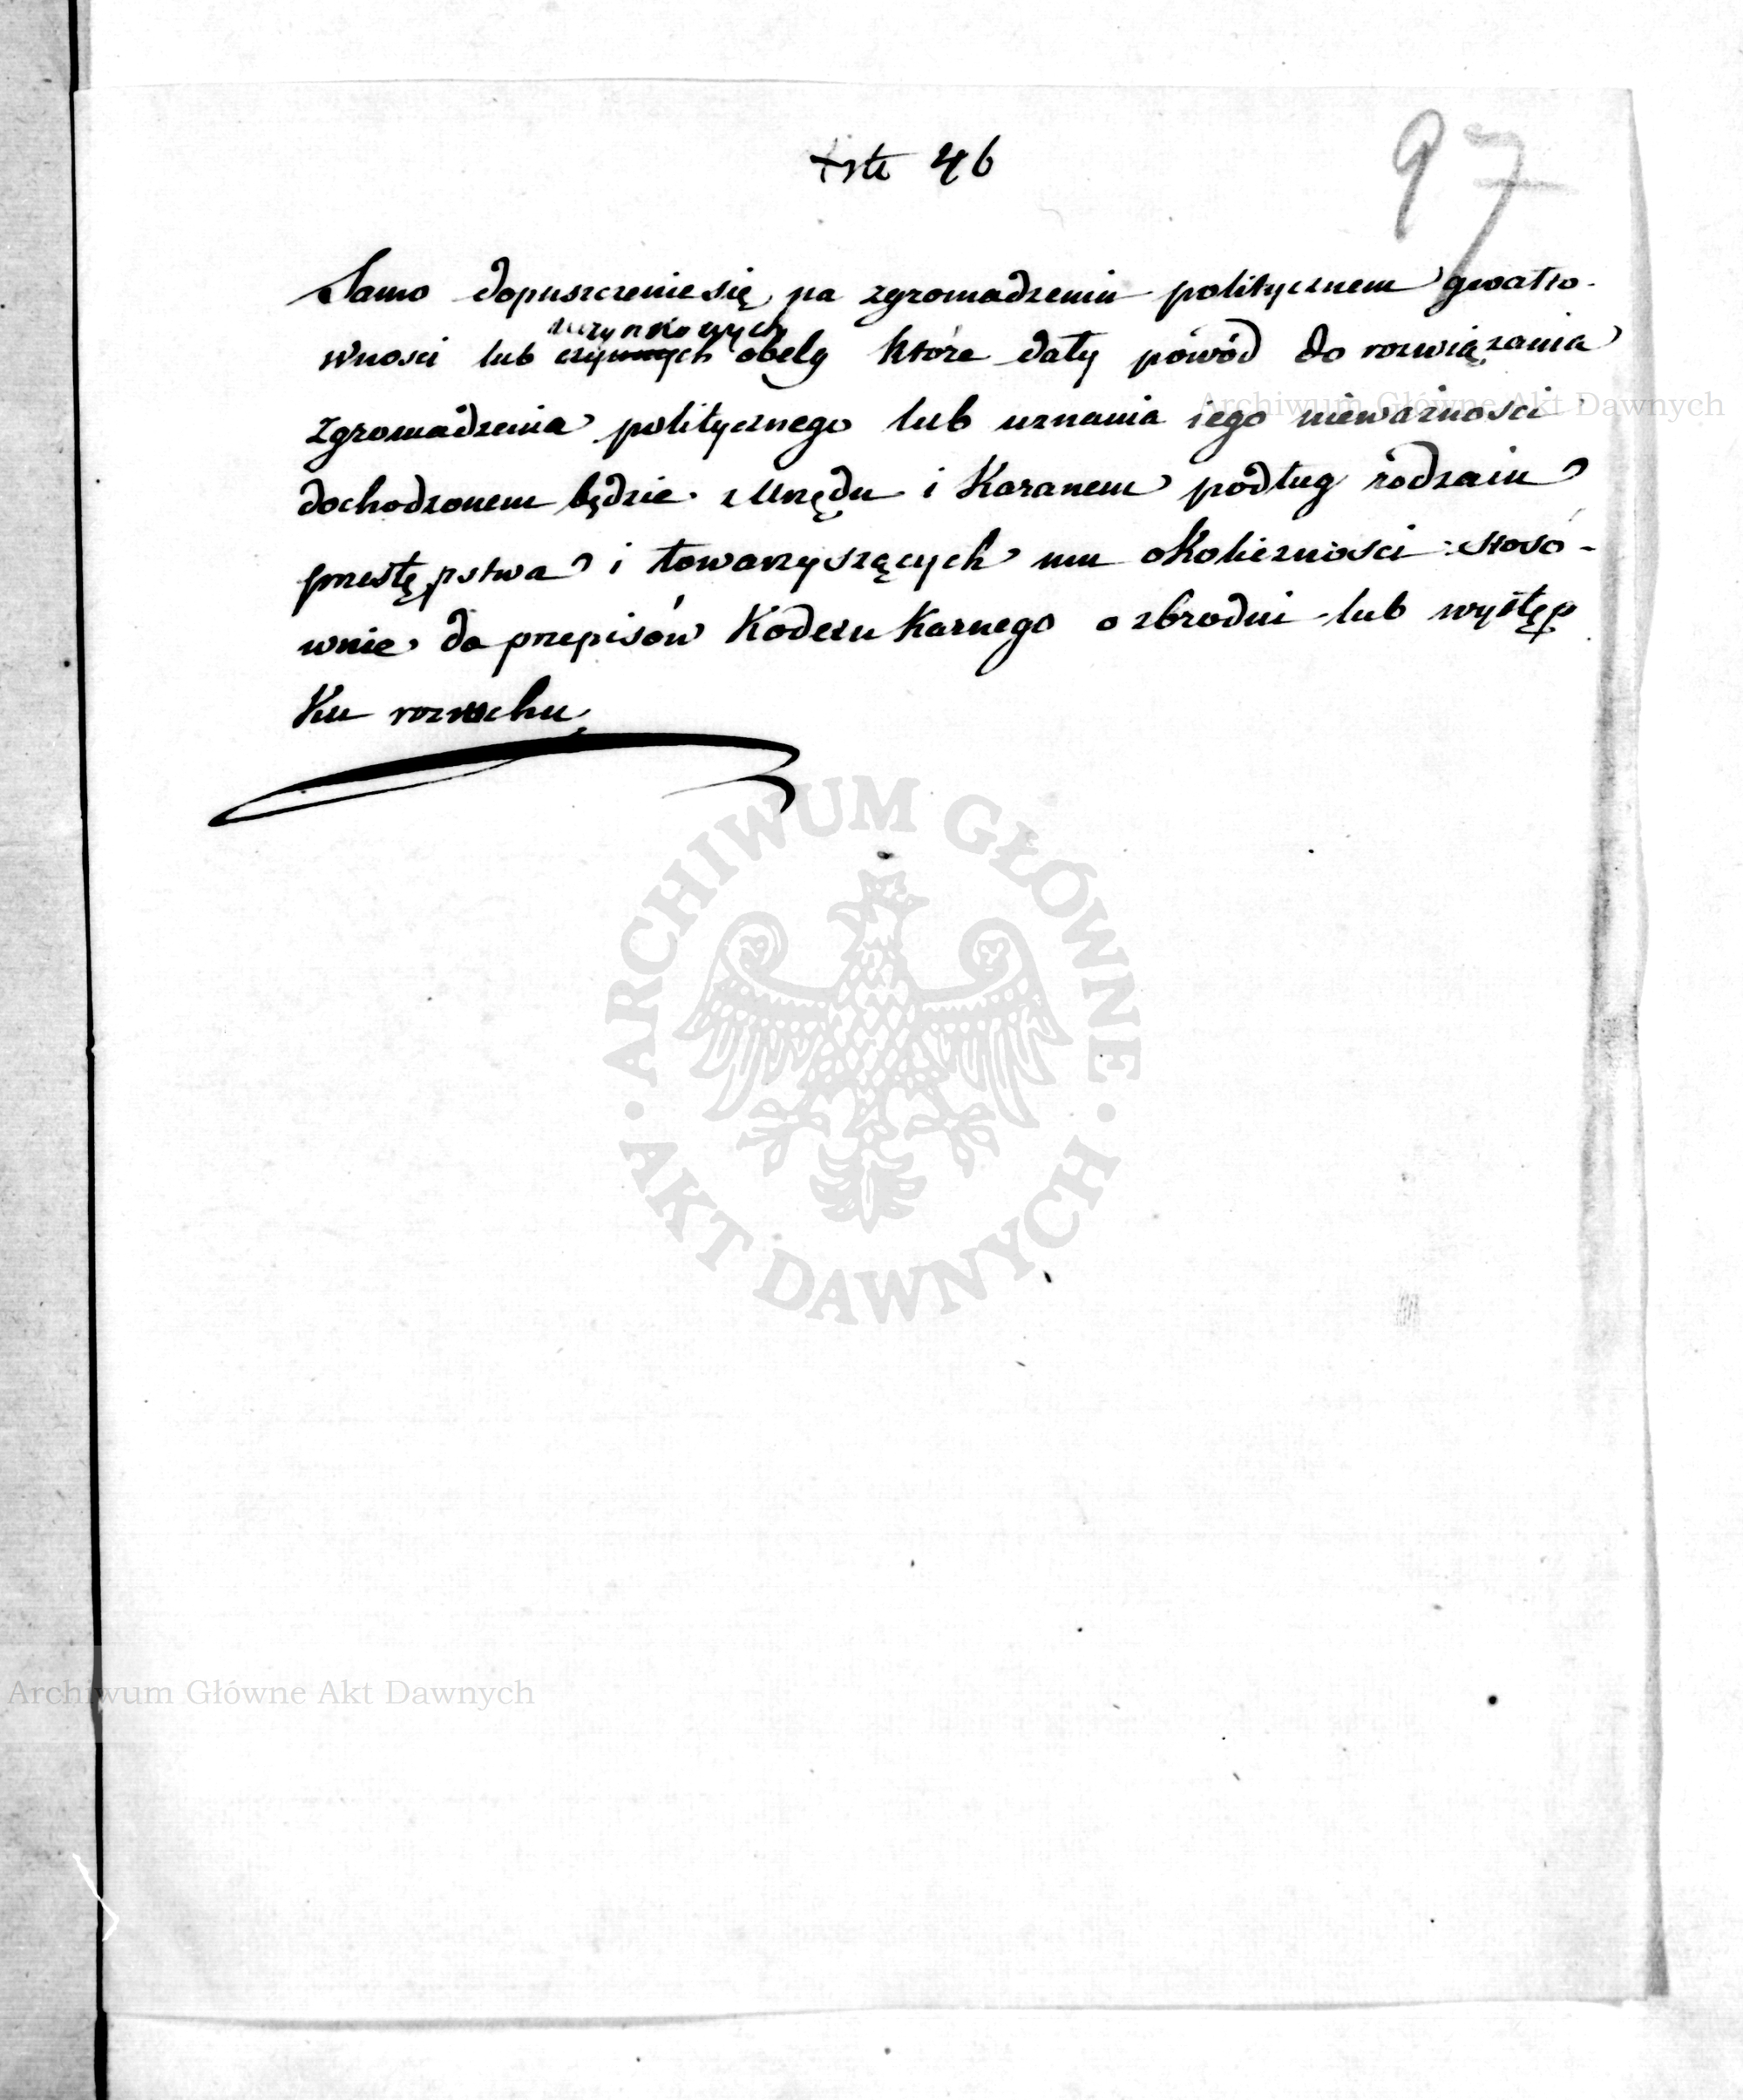 97
Art 46
Samo dopuszczenie się na zgromadzeniu politycznem gwałto-
uczynkowych
wności lub czynnych obelg które dały pówód do rozwiązania
zgromadzenia politycznego lub uznania iego nieważności
dochodzonem będzie z Urzędu i Karanem podług rodzaiu
przestępstwa i towarzyszących mu okoliczności stosó-
wnie do przepisów Kodexu Karnego o zbrodni lub występ
Ku rozruchu
Archiwum Główne Akt Dawnych
ARCHIWUM GŁÓWNE
AKT DAWNYCH
Archiwum Główne Akt Dawnych